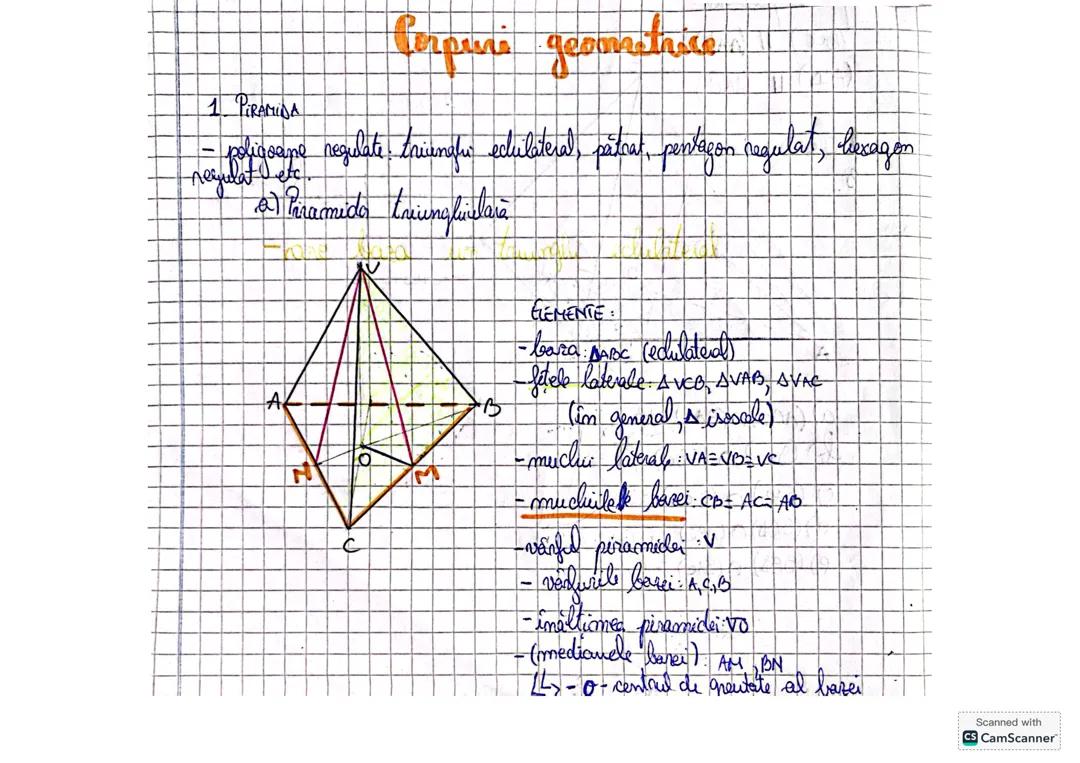 Corpuri geometrice
1. PIRAMIDA
- poligoane regulate: triunghi echilateral, pătrat, pentagon regulat, hexagon
regulat etc.
a) Piramida triunghiulară
- are baza un triunghi echilateral
V
ELEMENTE:
- baza: ΔABC (echilateral)
- fețele laterale: ΔVCB, ΔVAB, ΔVAC
A
B
(în general, Δ isoscele)
O
- muchii laterale: VA≡VB≡VC
N
M
- muchiile bazei: CB≡ AC≡ AB
C
- vârful piramidei: V
- vârfurile bazei: A, C, B
- înălțimea piramidei: VO
- (medianele bazei): AM, BN
↳ - O - centrul de greutate al bazei
Scanned with
CS CamScanner